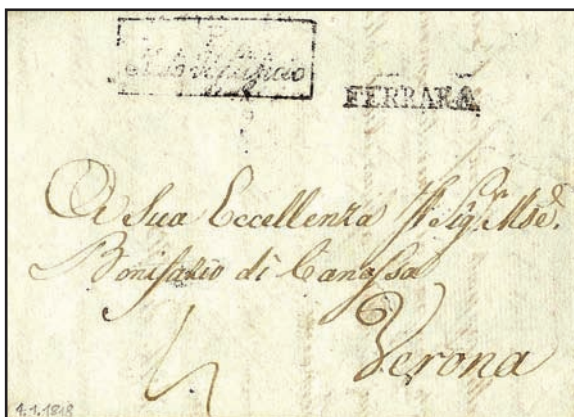 FERRARA
A Sua Eccellenza Il Sig.r Mse.
Bonifazio di Canossa
Verona
4.1.1818